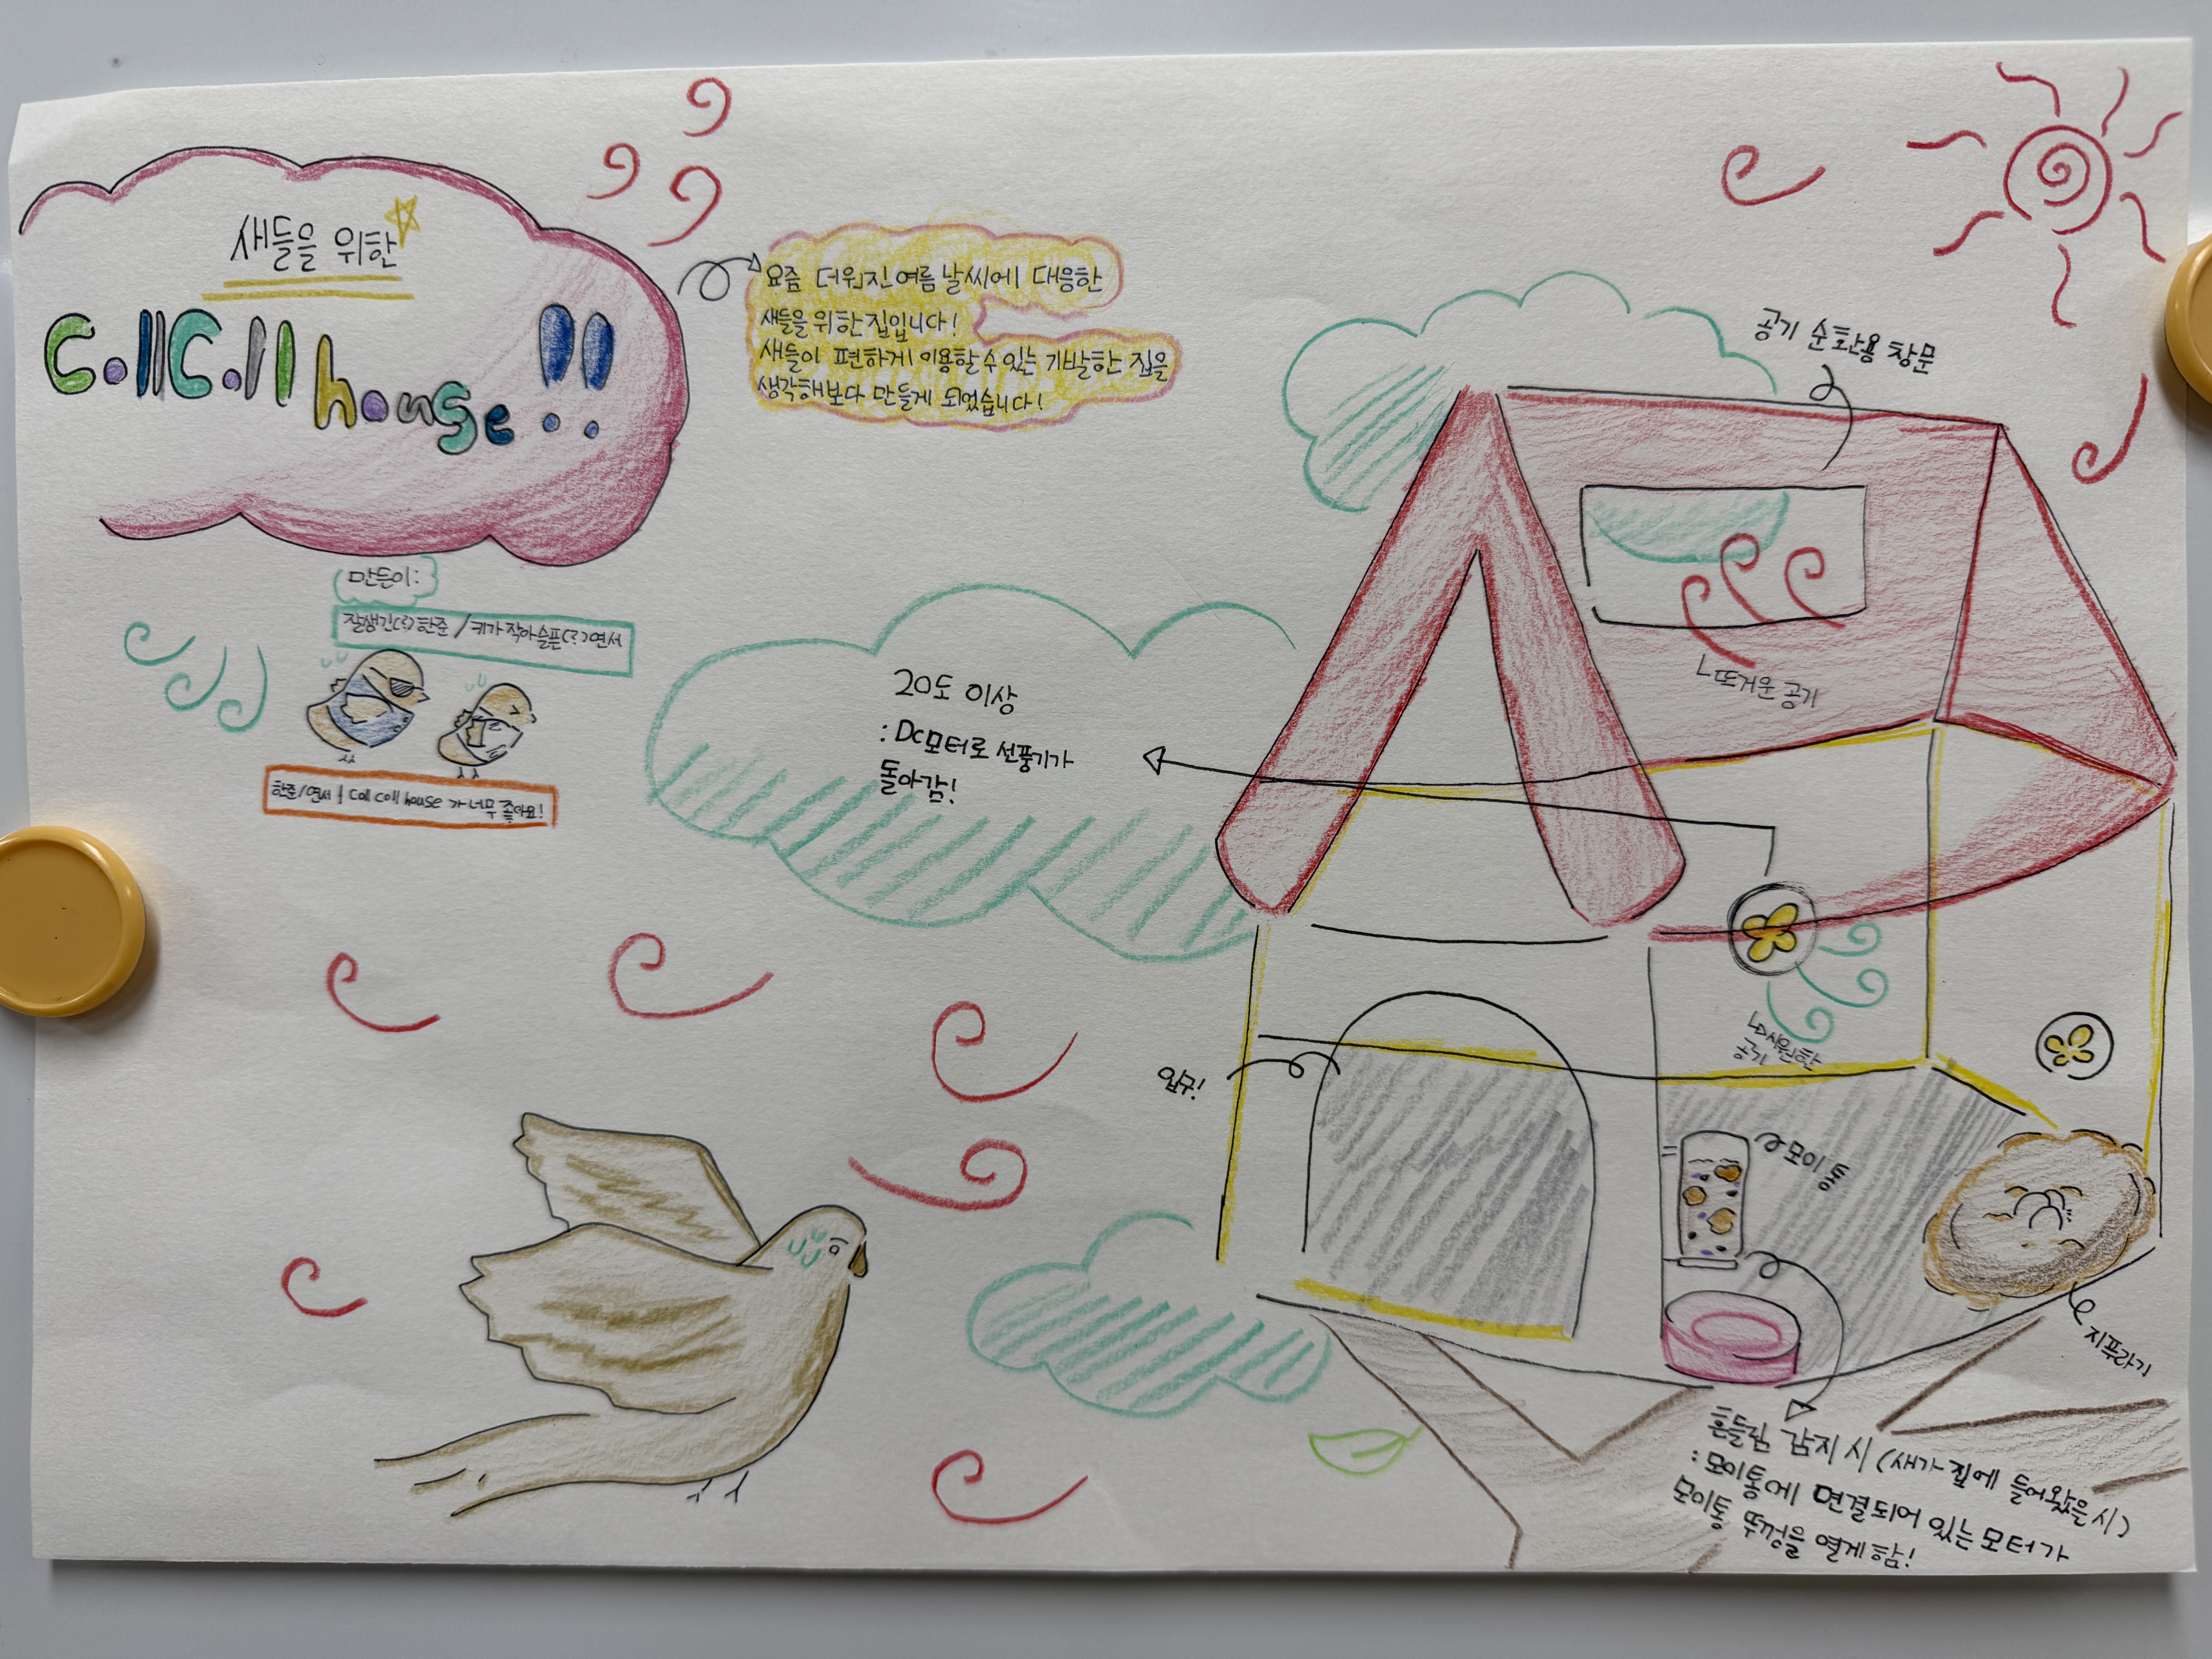 새들을 위한
CollColl house!!
요즘 더워진 여름 날씨에 대응한
새들을 위한 집입니다!
새들이 편하게 이용할 수 있는 기발한 집을
생각해보다 만들게 되었습니다!
만든이:
잘생긴(?)한준 / 키가작아슬픈(?)연서
한준/연서 | Coll Coll house 가 너무 좋아요!
공기 순환용 창문
뜨거운 공기
20도 이상
: DC모터로 선풍기가
돌아감!
시원한
공기
입구!
모이통
지푸라기
흔들림 감지 시 (새가 집에 들어왔을 시)
: 모이통에 연결되어 있는 모터가
모이통 뚜껑을 열게함!